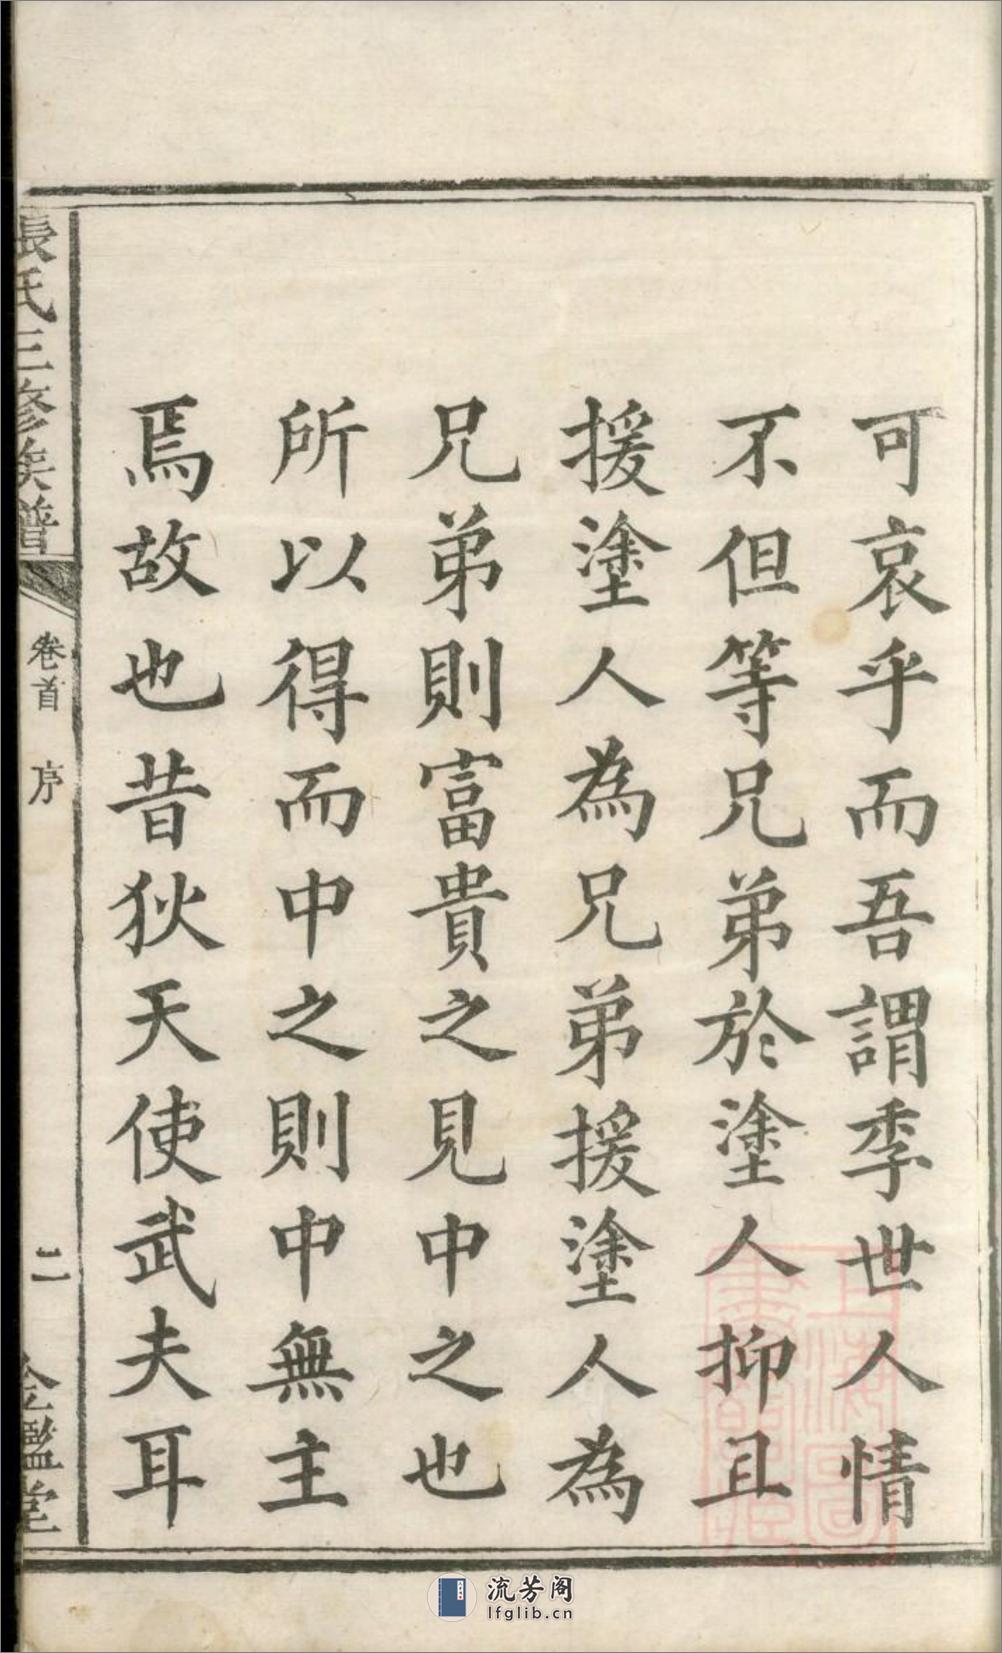 可哀乎而吾謂季世人情
不但等兄弟於塗人抑且
援塗人為兄弟援塗人為
兄弟則富貴之見中之也
所以得而中之則中無主
焉故也昔狄天使武夫耳
張氏三修族譜
卷首 序
二
金鑑堂
上海圖書館藏
流芳阁
lfglib.cn